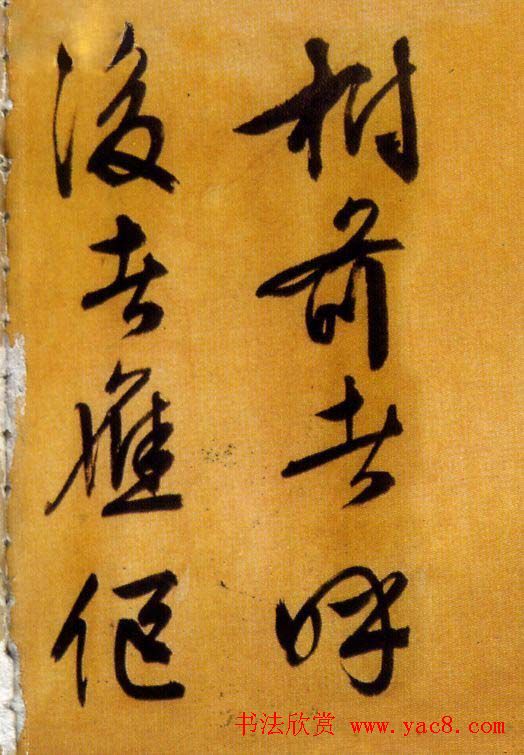 樹前者呼
後者應傴
书法欣赏 www.yac8.com